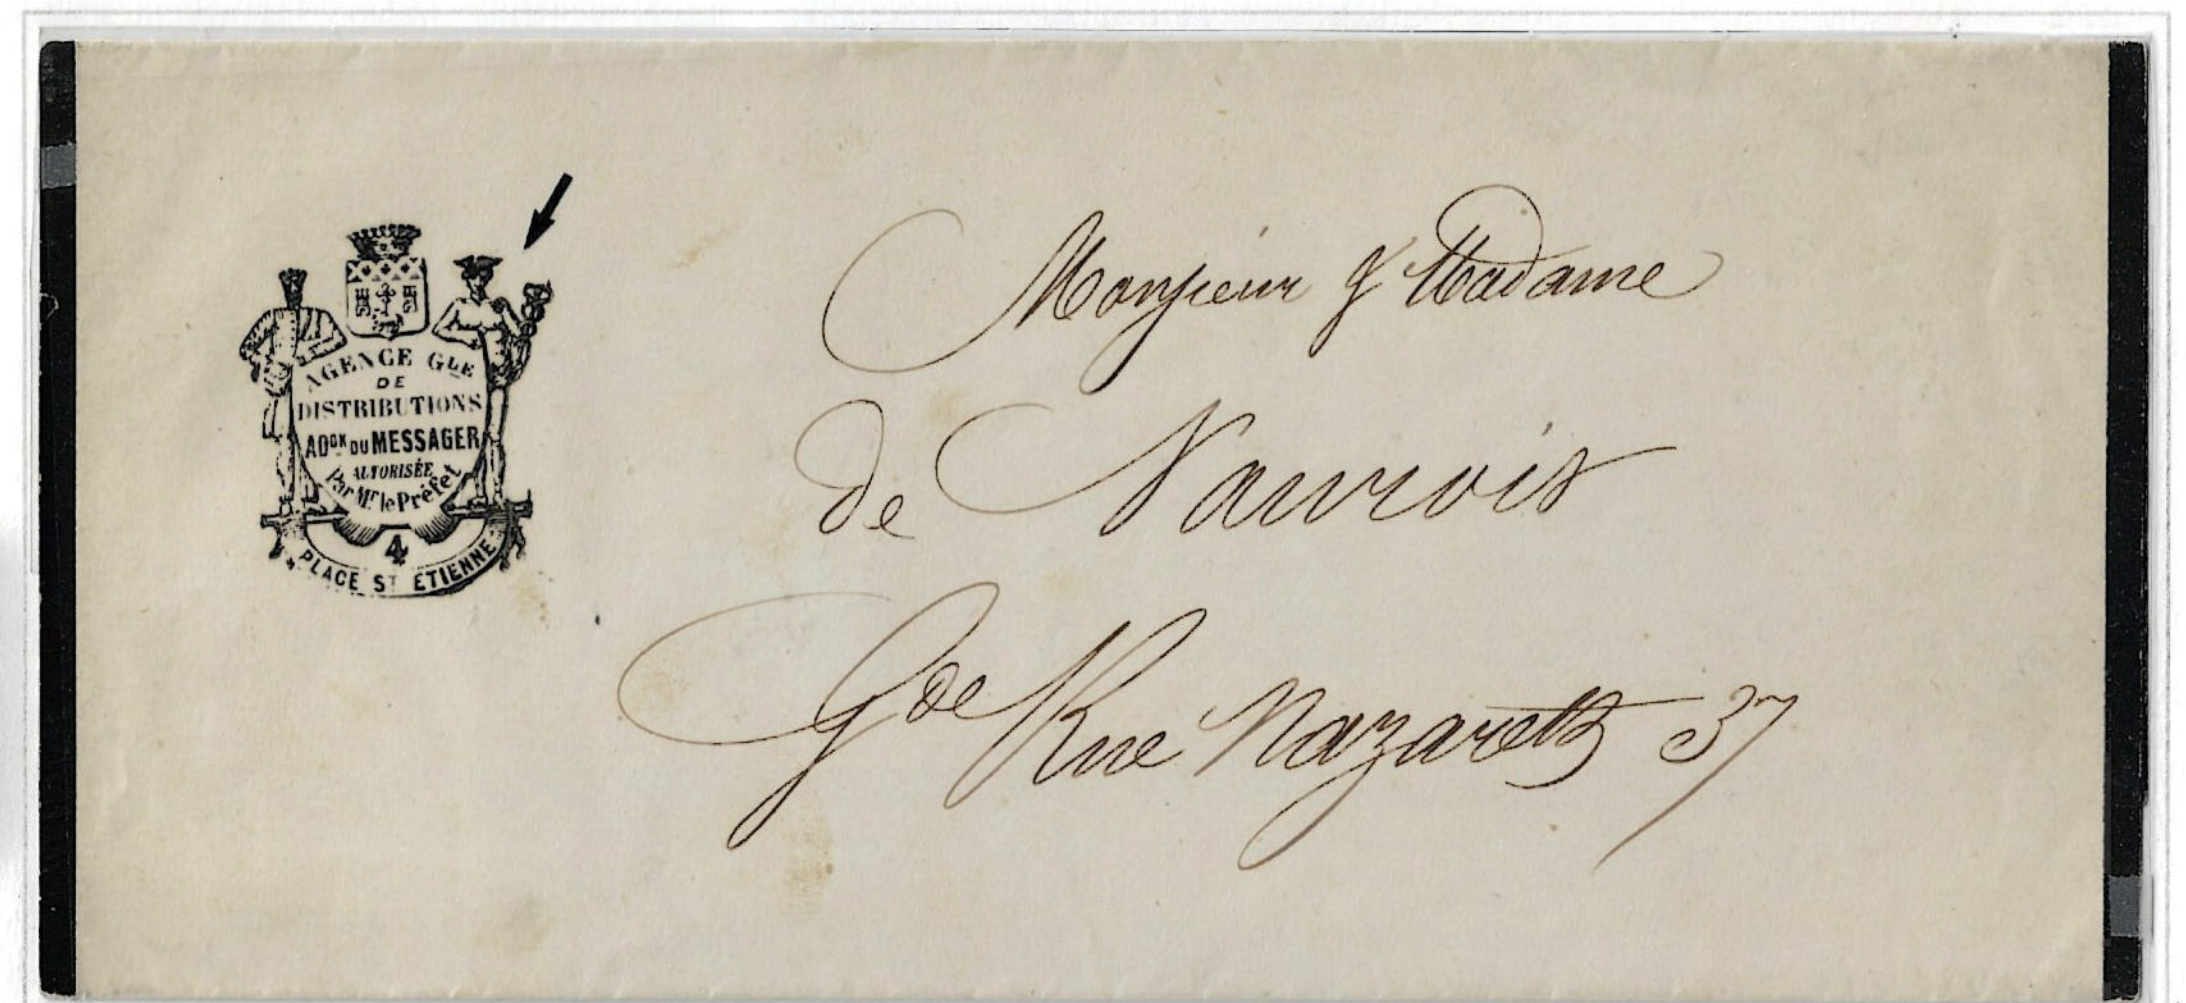 AGENCE GLE
DE
DISTRIBUTIONS
ADON DU MESSAGER
AUTORISÉE
Par Mr le Préfet
4
PLACE ST ETIENNE
Monsieur & Madame
de Naurois
Gde Rue Nazareth 37